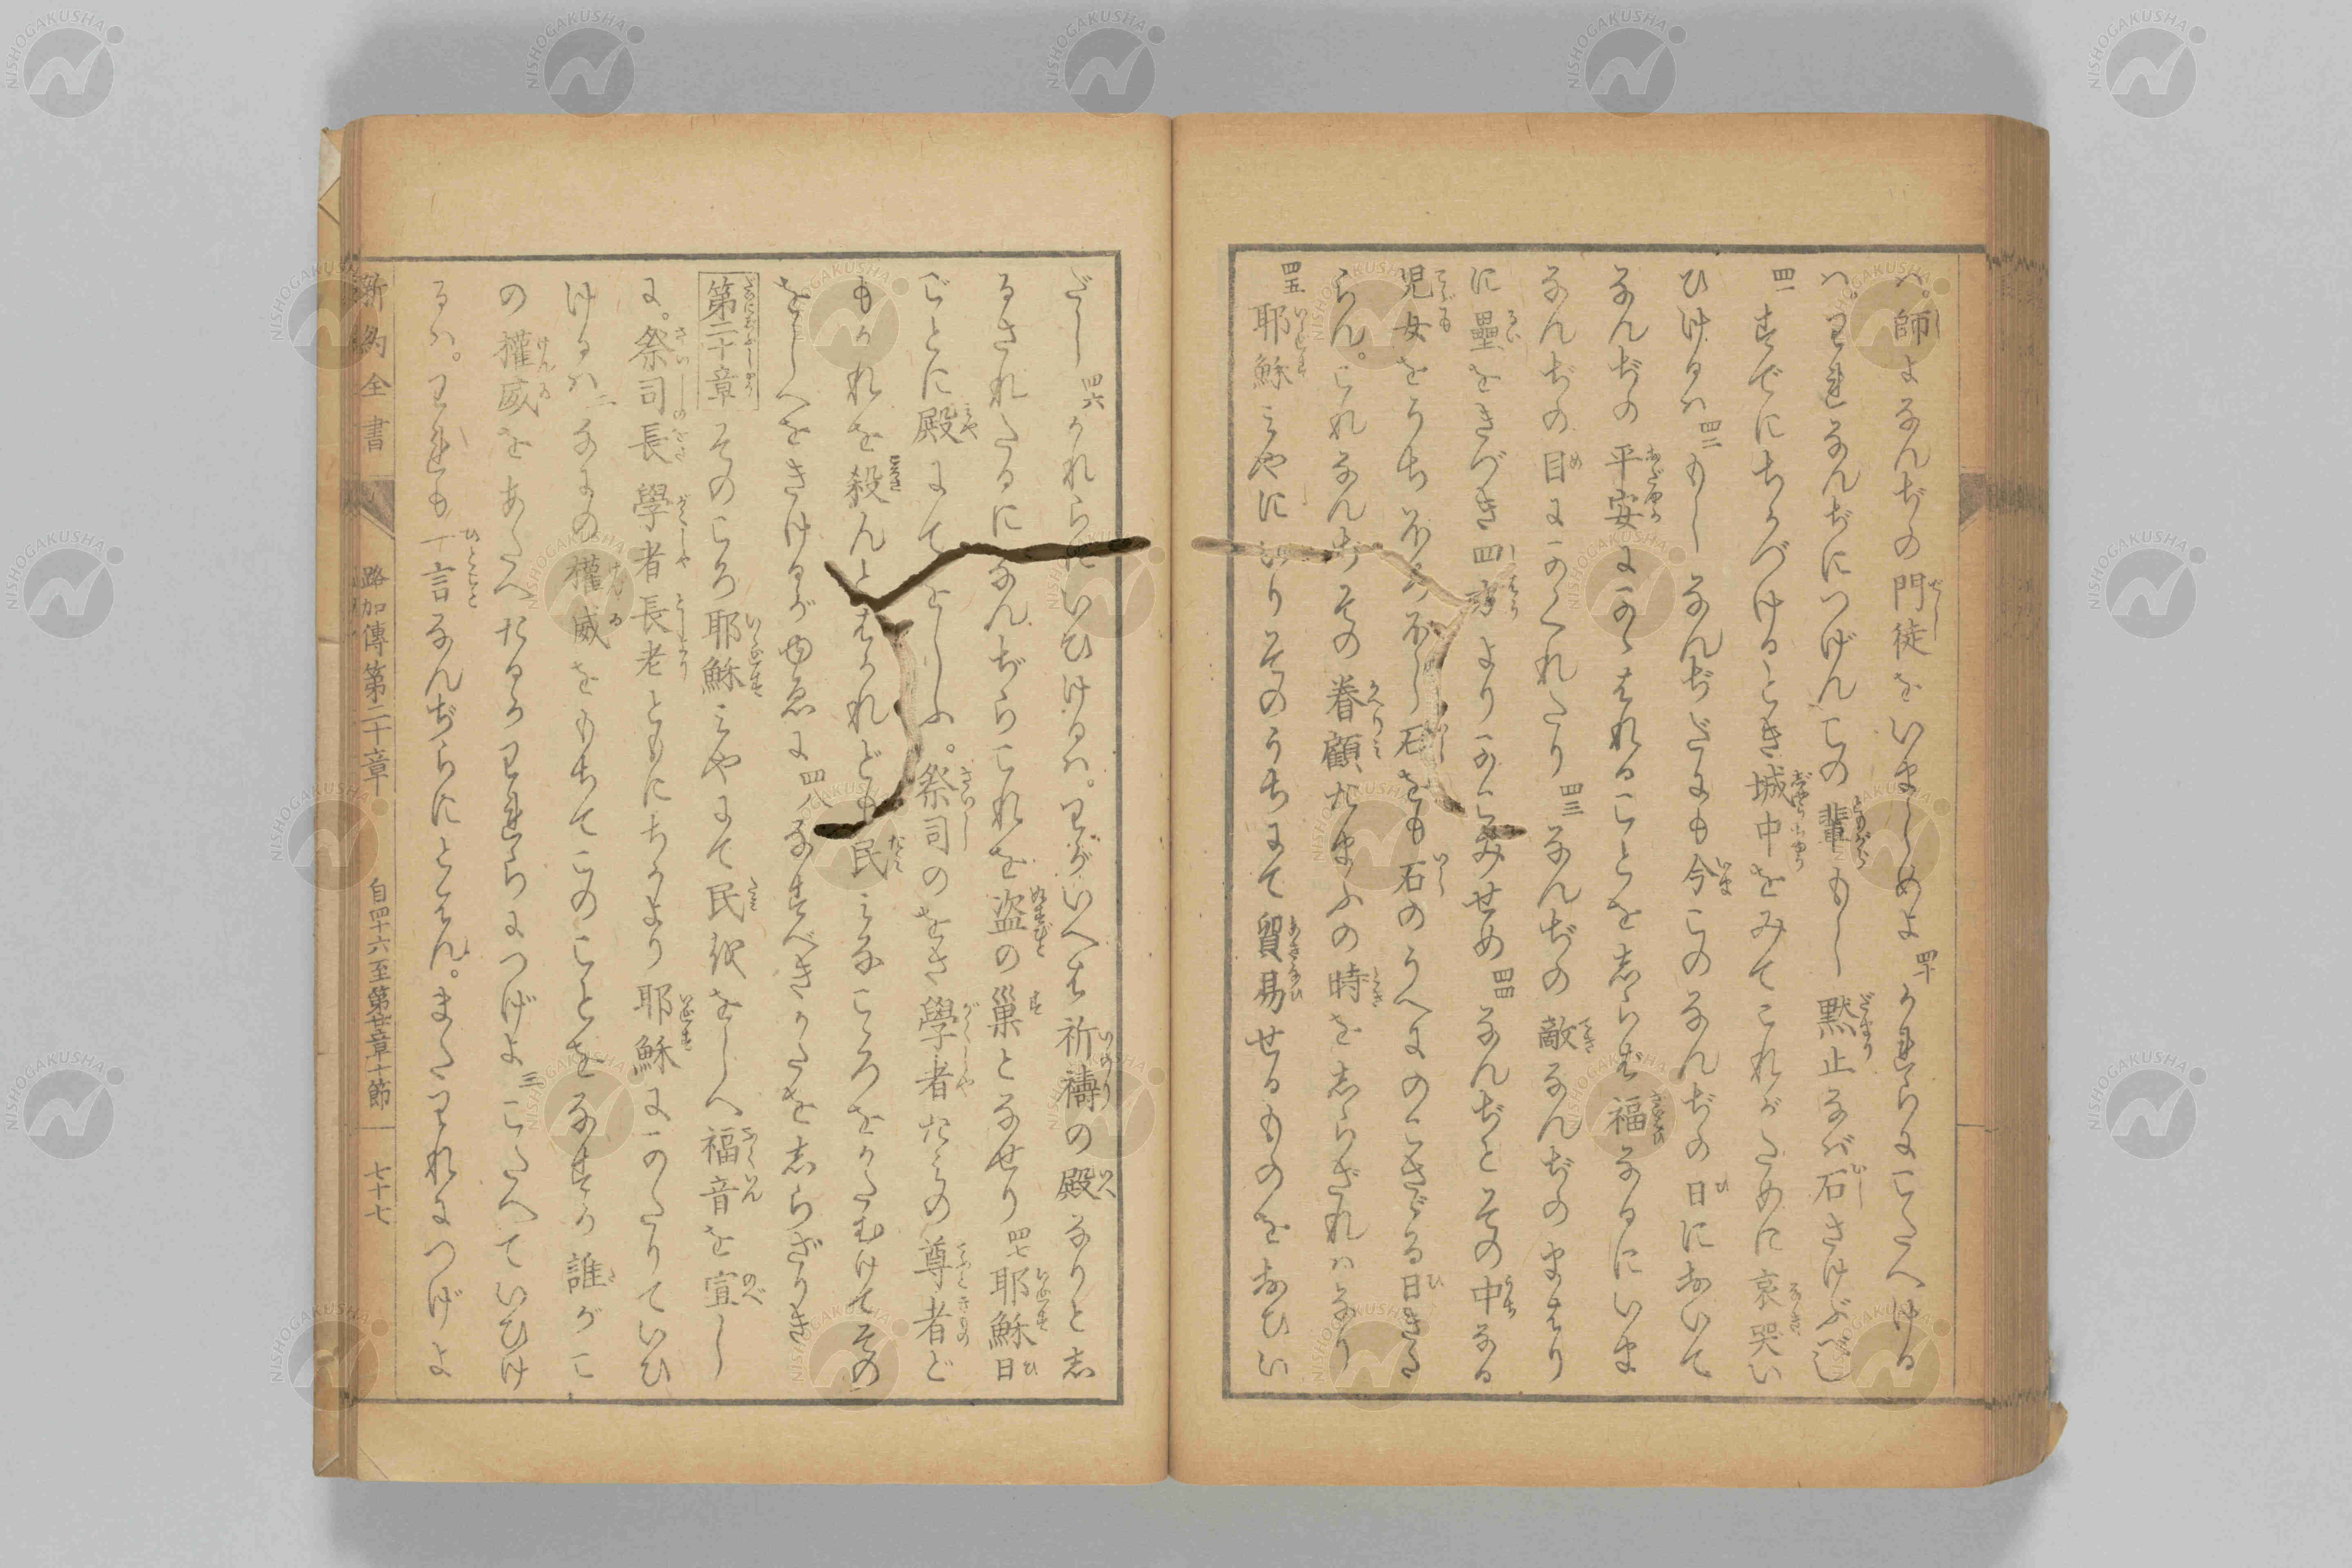 ハ。師よなんぢの門徒をいましめよ四十かれらにこたへける
ハ。われなんぢにつげんこの輩もし黙止なバ石さけぶべし
四一すでにちかづけるとき城中をみてこれがために哀哭い
ひけるハ四二もしなんぢだにも今このなんぢの日において
なんぢの平安にかゝはれることをしらば福なるにいま
なんぢの目にかくれたり四三なんぢの敵なんぢのまはり
に壘をきづき四方よりかこみせめ四四なんぢとその中なる
児女をうち石をも石のうへにのこさゞる日きた
らん。これなんぢその眷顧たまふの時をしらざれハなり
四五耶穌みやにいりそのうちにて貿易せるものをおひい
だし四六かれらにいひけるハ。わがいへは祈禱の殿なりとし
るされたるになんぢらこれを盗の巣となせり四七耶穌日
ごとに殿にてをしふ。祭司のをさ學者たみの尊者ど
もかれを殺んとはかれども民みなこゝろをかたむけてその
をしへをきけるがゆゑに四八なすべきかたをしらざりき
第二十章そのころ耶穌みやにて民衆をしへ福音を宣し
に。祭司長學者長老ともにちかより耶穌にかたりていひ
けるハ二なにの權威をもちてこのことをなすか誰がこ
の權威をあたへたるかわれらにつげよ三こたへていひけ
るハ。われも一言なんぢらにとはん。またわれにつげよ
新約全書 路加傳第二十章 自四十六至第廿章十節 七十七